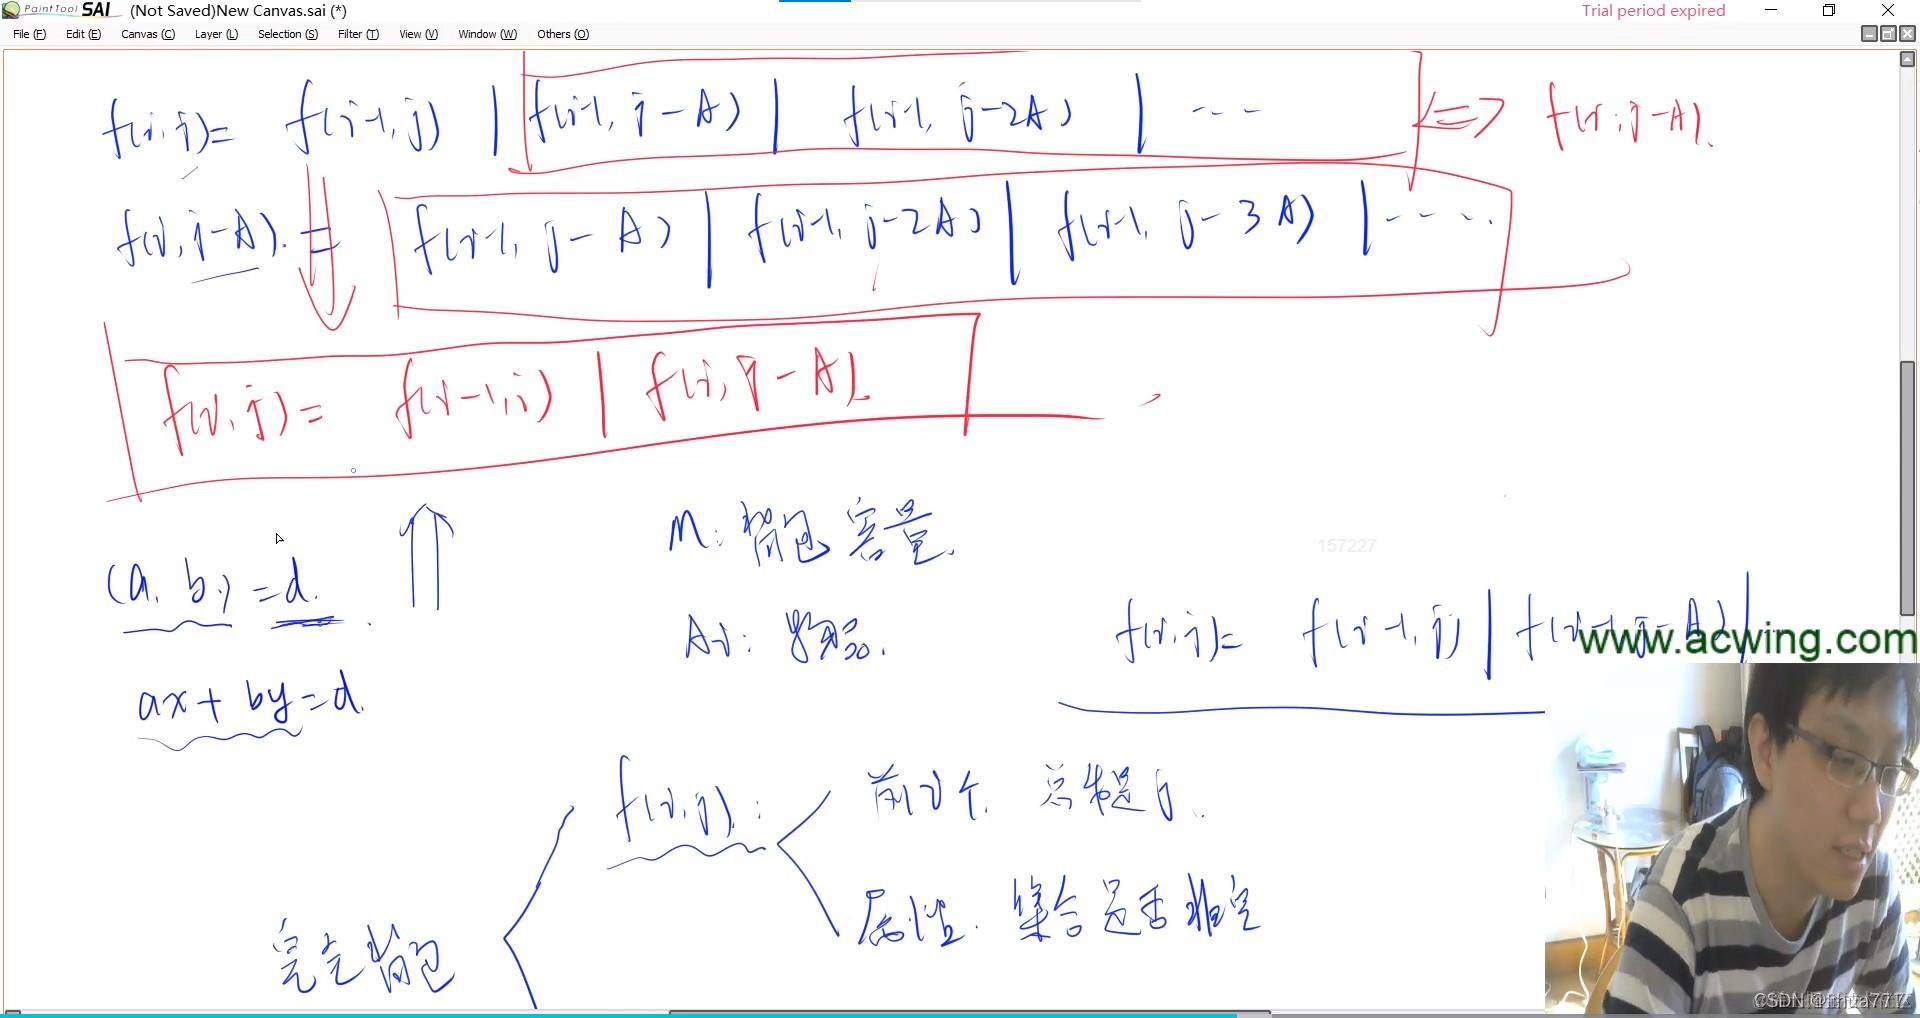 PaintTool SAI (Not Saved)New Canvas.sai (*) Trial period expired
File (F) Edit (E) Canvas (C) Layer (L) Selection (S) Filter (T) View (V) Window (W) Others (O)
f(i,j)= f(i-1,j) | f(i-1, j-A) | f(i-1, j-2A) | ... <=> f(i,j-A).
f(i,j-A).= f(i-1, j-A) | f(i-1, j-2A) | f(i-1, j-3A) | .....
f(i,j)= f(i-1,j) | f(i,j-A).
M: 背包容量.
157227
(a, b) = d.
Ai: 物品.
f(i,j)= f(i-1,j) | f(i-1,j-A) |
www.acwing.com
ax+by=d.
f(i,j): 前i个. 总和是j.
属性. 集合是否非空
完全背包